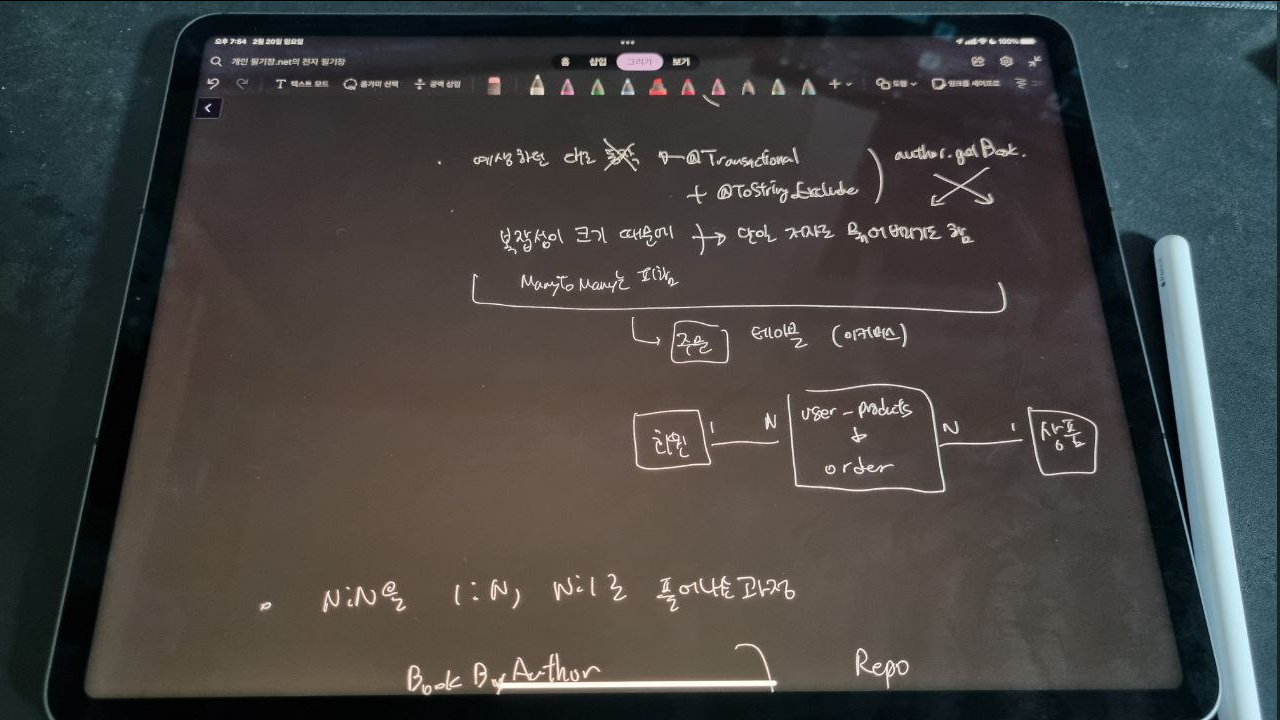 오후 7:54 2월 20일 일요일
100%
개인 필기장.net의 전자 필기장
홈 삽입 그리기 보기
텍스트 모드 올가미 선택 공백 삽입 도형 잉크를 셰이프로
예상하던 대로 @Transactional author.getBook.
+ @ToString.Exclude
복잡성이 크기 때문에 → 단일 저자로 묶어버리기도 함
ManyToMany는 피함
주문 테이블 (이커머스)
user-products
회원 1 N N 1 상품
order
N:N을 1:N, N:1로 풀어나는 과정
Book By Author Repo